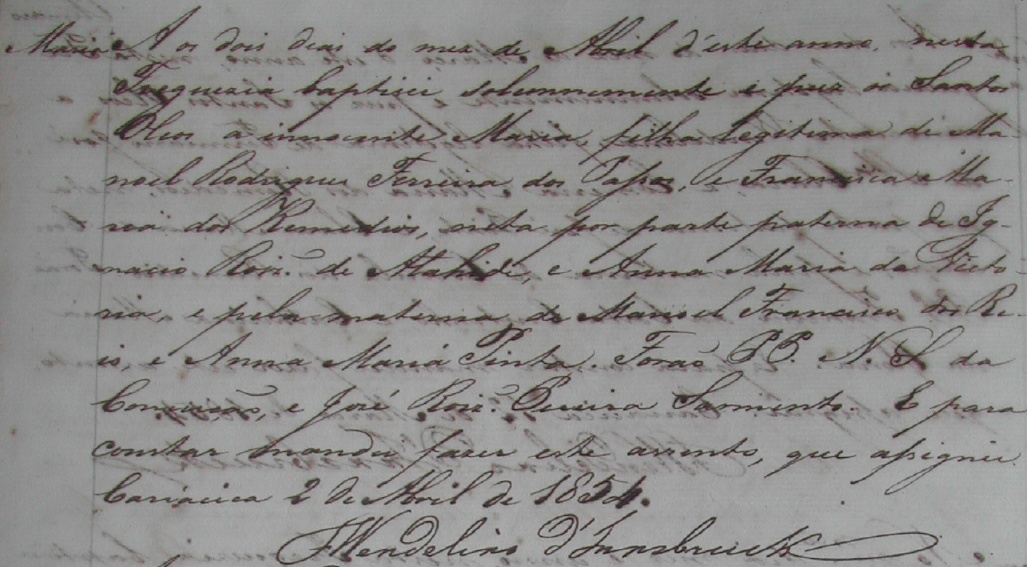 Maria Aos dois dias do mez de Abril d'este anno, nesta
Freguezia baptisei solemnemente e puz os Santos
Oleos a innocente Maria, filha legitima de Ma-
noel Rodrigues Ferreira dos Passos, e Francisca Ma-
ria dos Remedios, neta por parte paterna de Ig-
nacio Roiz. de Atahide, e Anna Maria da Victo-
ria, e pela materna de Manoel Francisco dos Re-
is, e Anna Maria Pinta. Forão P.P. N. S. da
Conceição, e José Roiz. Pereira Sarmento. E para
constar mandei fazer este assento, que assignei.
Cariacica 2 de Abril de 1854.
Fr Wendelino d'Innsbruck